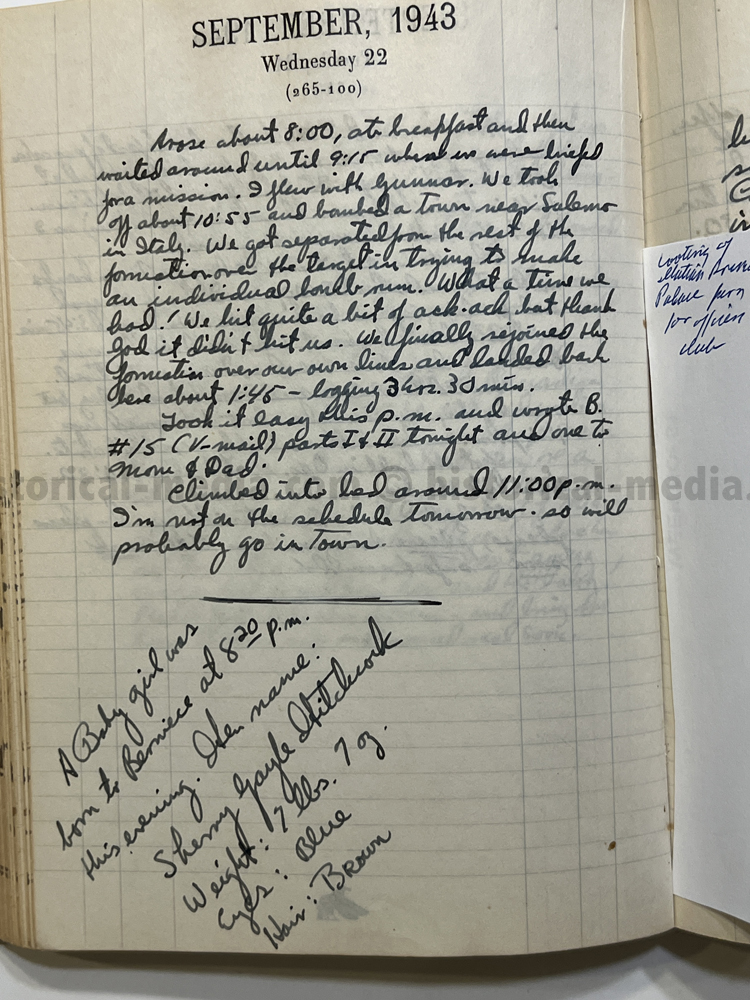 SEPTEMBER, 1943
Wednesday 22
(265-100)
Arose about 8:00, ate breakfast and then
waited around until 9:15 when we were briefed
for a mission. I flew with Gunnar. We took
off about 10:55 and bombed a town near Salerno
in Italy. We got separated from the rest of the
formation over the target in trying to make
an individual bomb run. What a time we
had! We hit quite a bit of ack-ack but thank
God it didn't hit us. We finally rejoined the
formation over our own lines and landed back
here about 1:45 – logging 3 hrs. 30 min.
Took it easy this p.m. and wrote B.
#15 (V-mail) parts I & II tonight and one to
Mom & Dad.
Climbed into bed around 11:00 p.m.
I'm not on the schedule tomorrow so will
probably go in town.
A Baby girl was
born to Berniece at 8 20 p.m.
this evening. Her name:
Sherry Gayle Hitchcock
Weight: 7 lbs. 7 oz.
Eyes: Blue
Hair: Brown
Palace
for officers
club
historical-media.